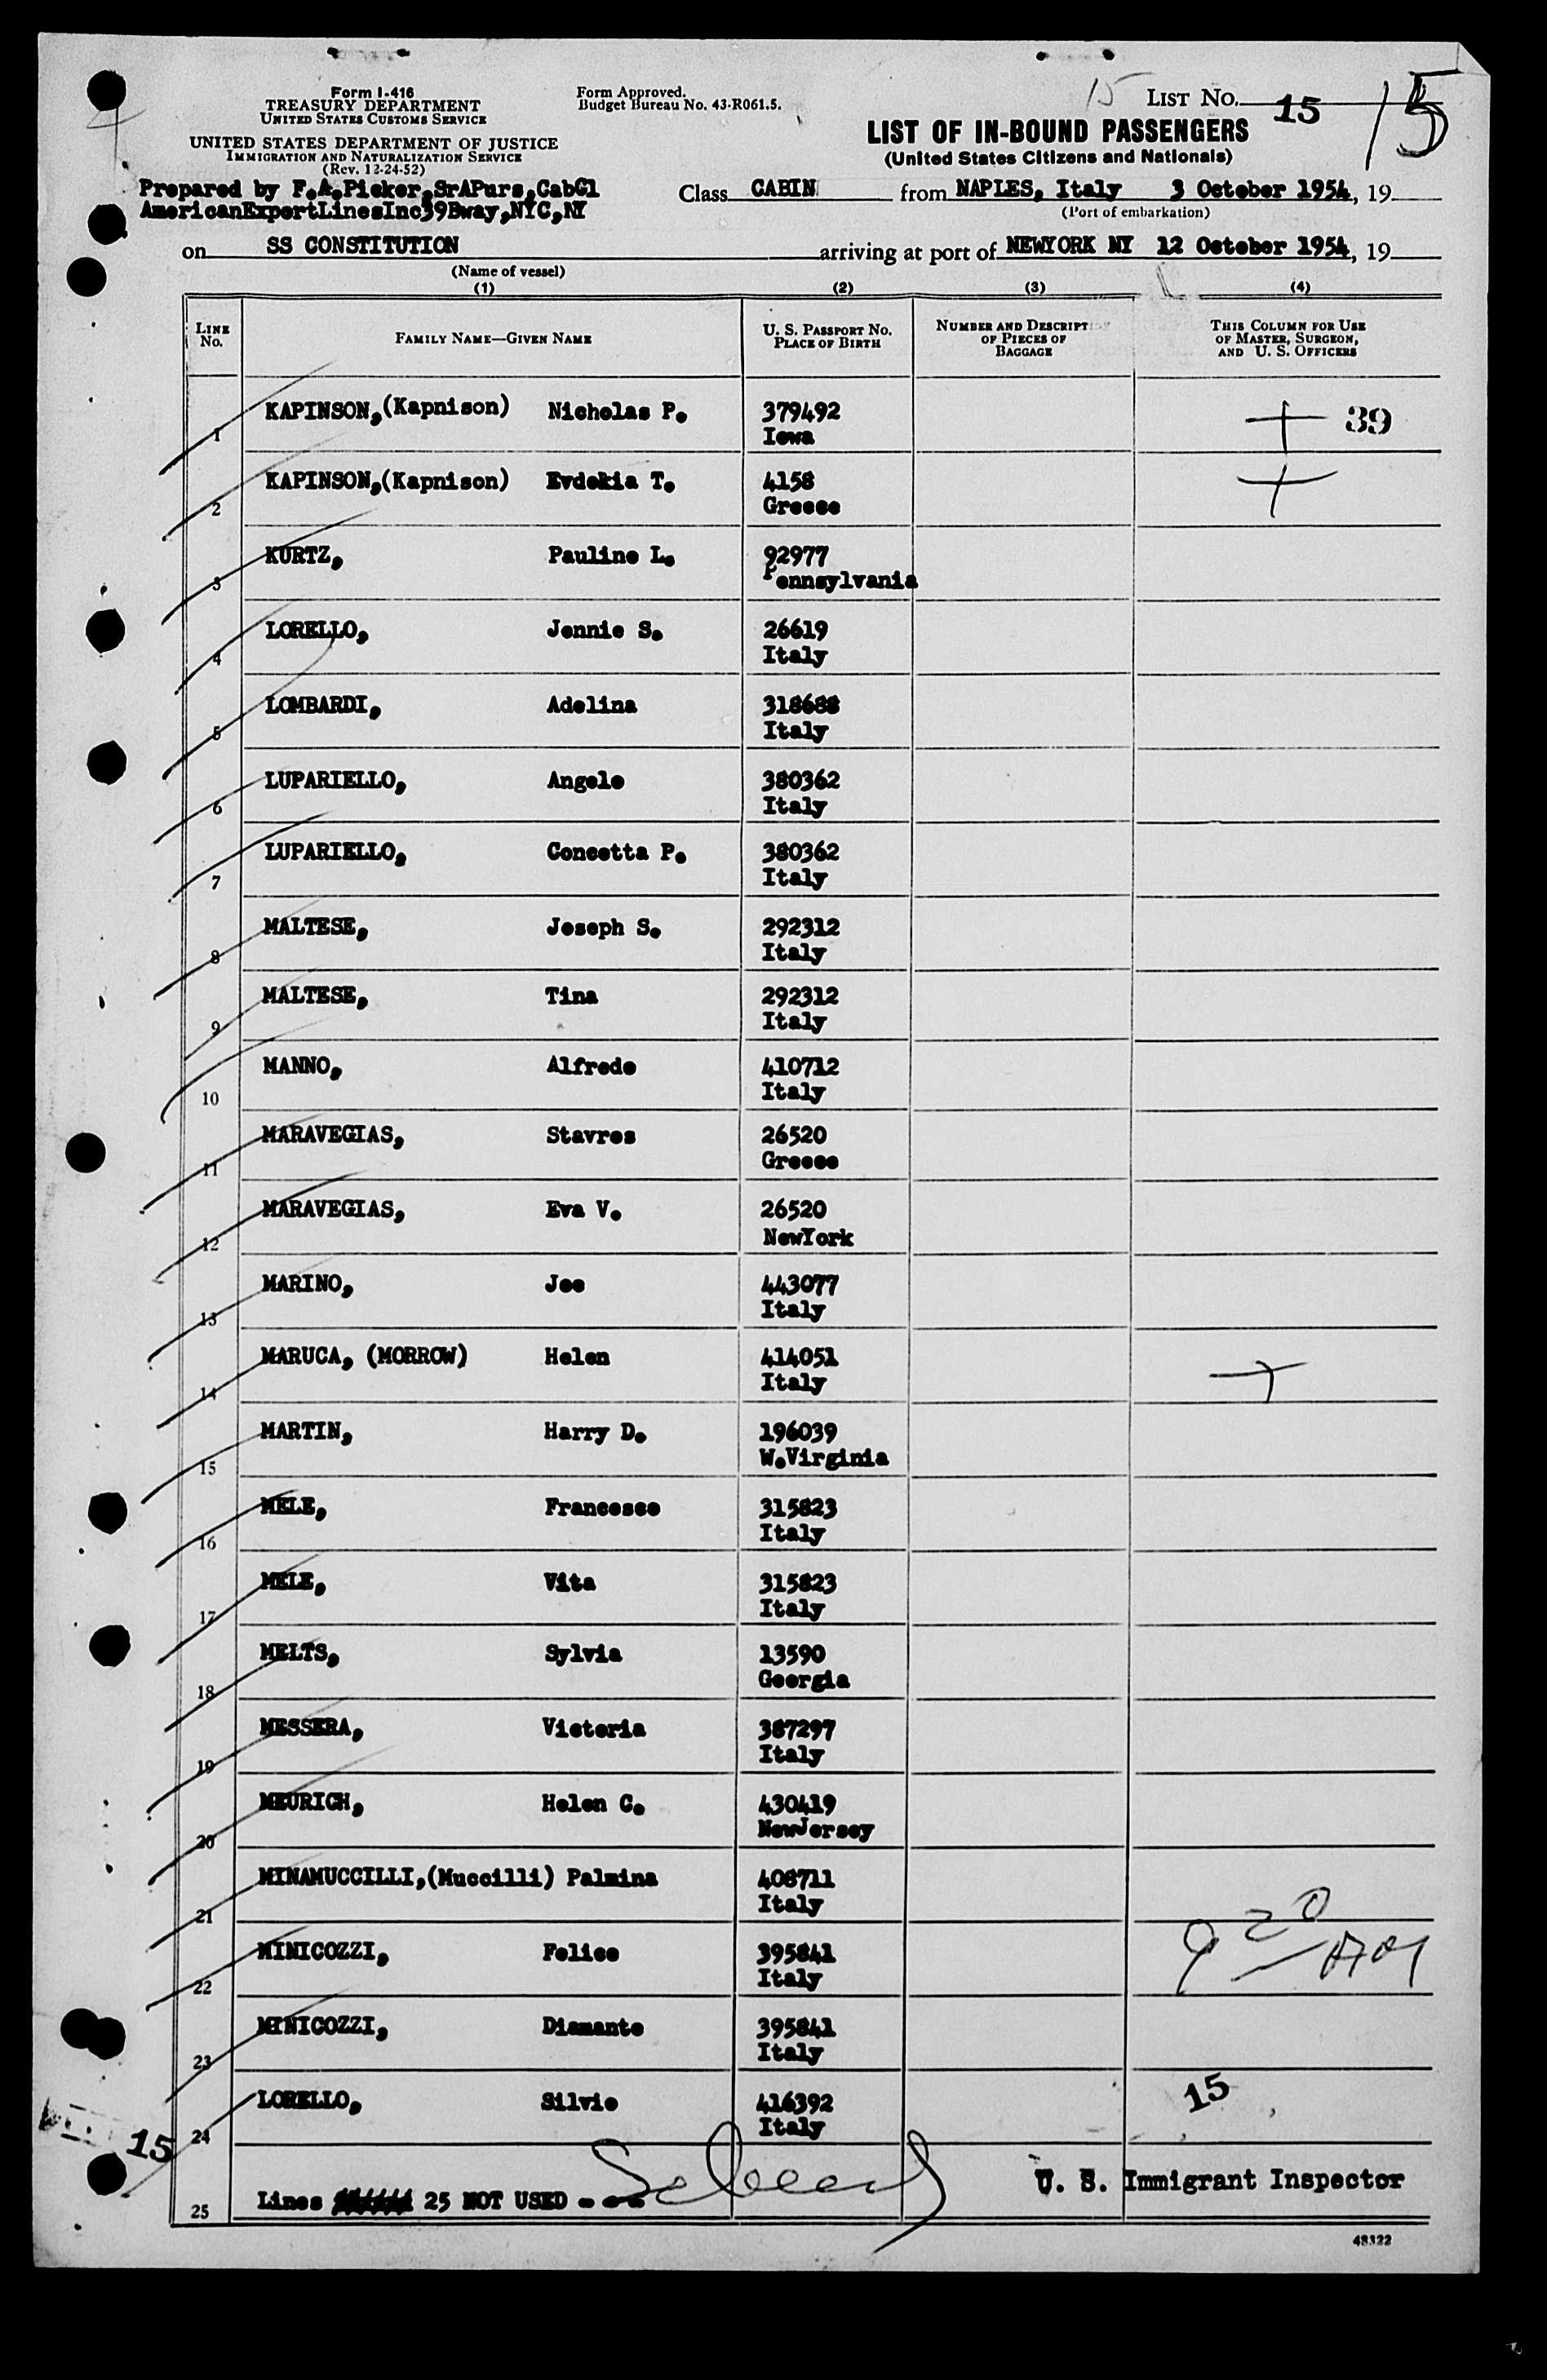 Form I-416
TREASURY DEPARTMENT
UNITED STATES CUSTOMS SERVICE
UNITED STATES DEPARTMENT OF JUSTICE
IMMIGRATION AND NATURALIZATION SERVICE
(Rev. 12-24-52)
Form Approved.
Budget Bureau No. 43-R061.5.
15 LIST NO. 15 15
LIST OF IN-BOUND PASSENGERS
(United States Citizens and Nationals)
Prepared by F.A.Picker,SrAPurs,CabCl
AmericanExportLinesInc39Bway,NYC,NY
Class CABIN from NAPLES, Italy 3 October 1954, 19
(Port of embarkation)
on SS CONSTITUTION arriving at port of NEWYORK NY 12 October 1954, 19
(Name of vessel)
(1) (2) (3) (4)
LINE No. FAMILY NAME—GIVEN NAME U. S. PASSPORT NO. PLACE OF BIRTH NUMBER AND DESCRIPT OF PIECES OF BAGGAGE THIS COLUMN FOR USE OF MASTER, SURGEON, AND U. S. OFFICERS
1 KAPINSON,(Kapnison) Nicholas P. 379492 39
Iowa
2 KAPINSON,(Kapnison) Evdokia T. 4158
Greece
3 KURTZ, Pauline L. 92977
Pennsylvania
4 LORELLO, Jennie S. 26619
Italy
5 LOMBARDI, Adelina 318688
Italy
6 LUPARIELLO, Angelo 380362
Italy
7 LUPARIELLO, Concetta P. 380362
Italy
8 MALTESE, Joseph S. 292312
Italy
9 MALTESE, Tina 292312
Italy
10 MANNO, Alfredo 410712
Italy
11 MARAVEGIAS, Stavros 26520
Greece
12 MARAVEGIAS, Eva V. 26520
NewYork
13 MARINO, Joe 443077
Italy
14 MARUCA, (MORROW) Helen 414051
Italy
15 MARTIN, Harry D. 196039
W.Virginia
16 MELE, Francesco 315823
Italy
17 MELE, Vita 315823
Italy
18 MELTS, Sylvia 13590
Georgia
19 MESSERA, Victoria 387297
Italy
20 MEURICH, Helen C. 430419
NewJersey
21 MINAMUCCILLI,(Muccilli) Palmina 408711
Italy
22 MINICOZZI, Felice 395841
Italy
9 20
23 MINICOZZI, Diamante 395841
Italy
24 LORELLO, Silvio 416392 15
Italy
15
25 Lines 25 NOT USED - - -
U. S. Immigrant Inspector
48322